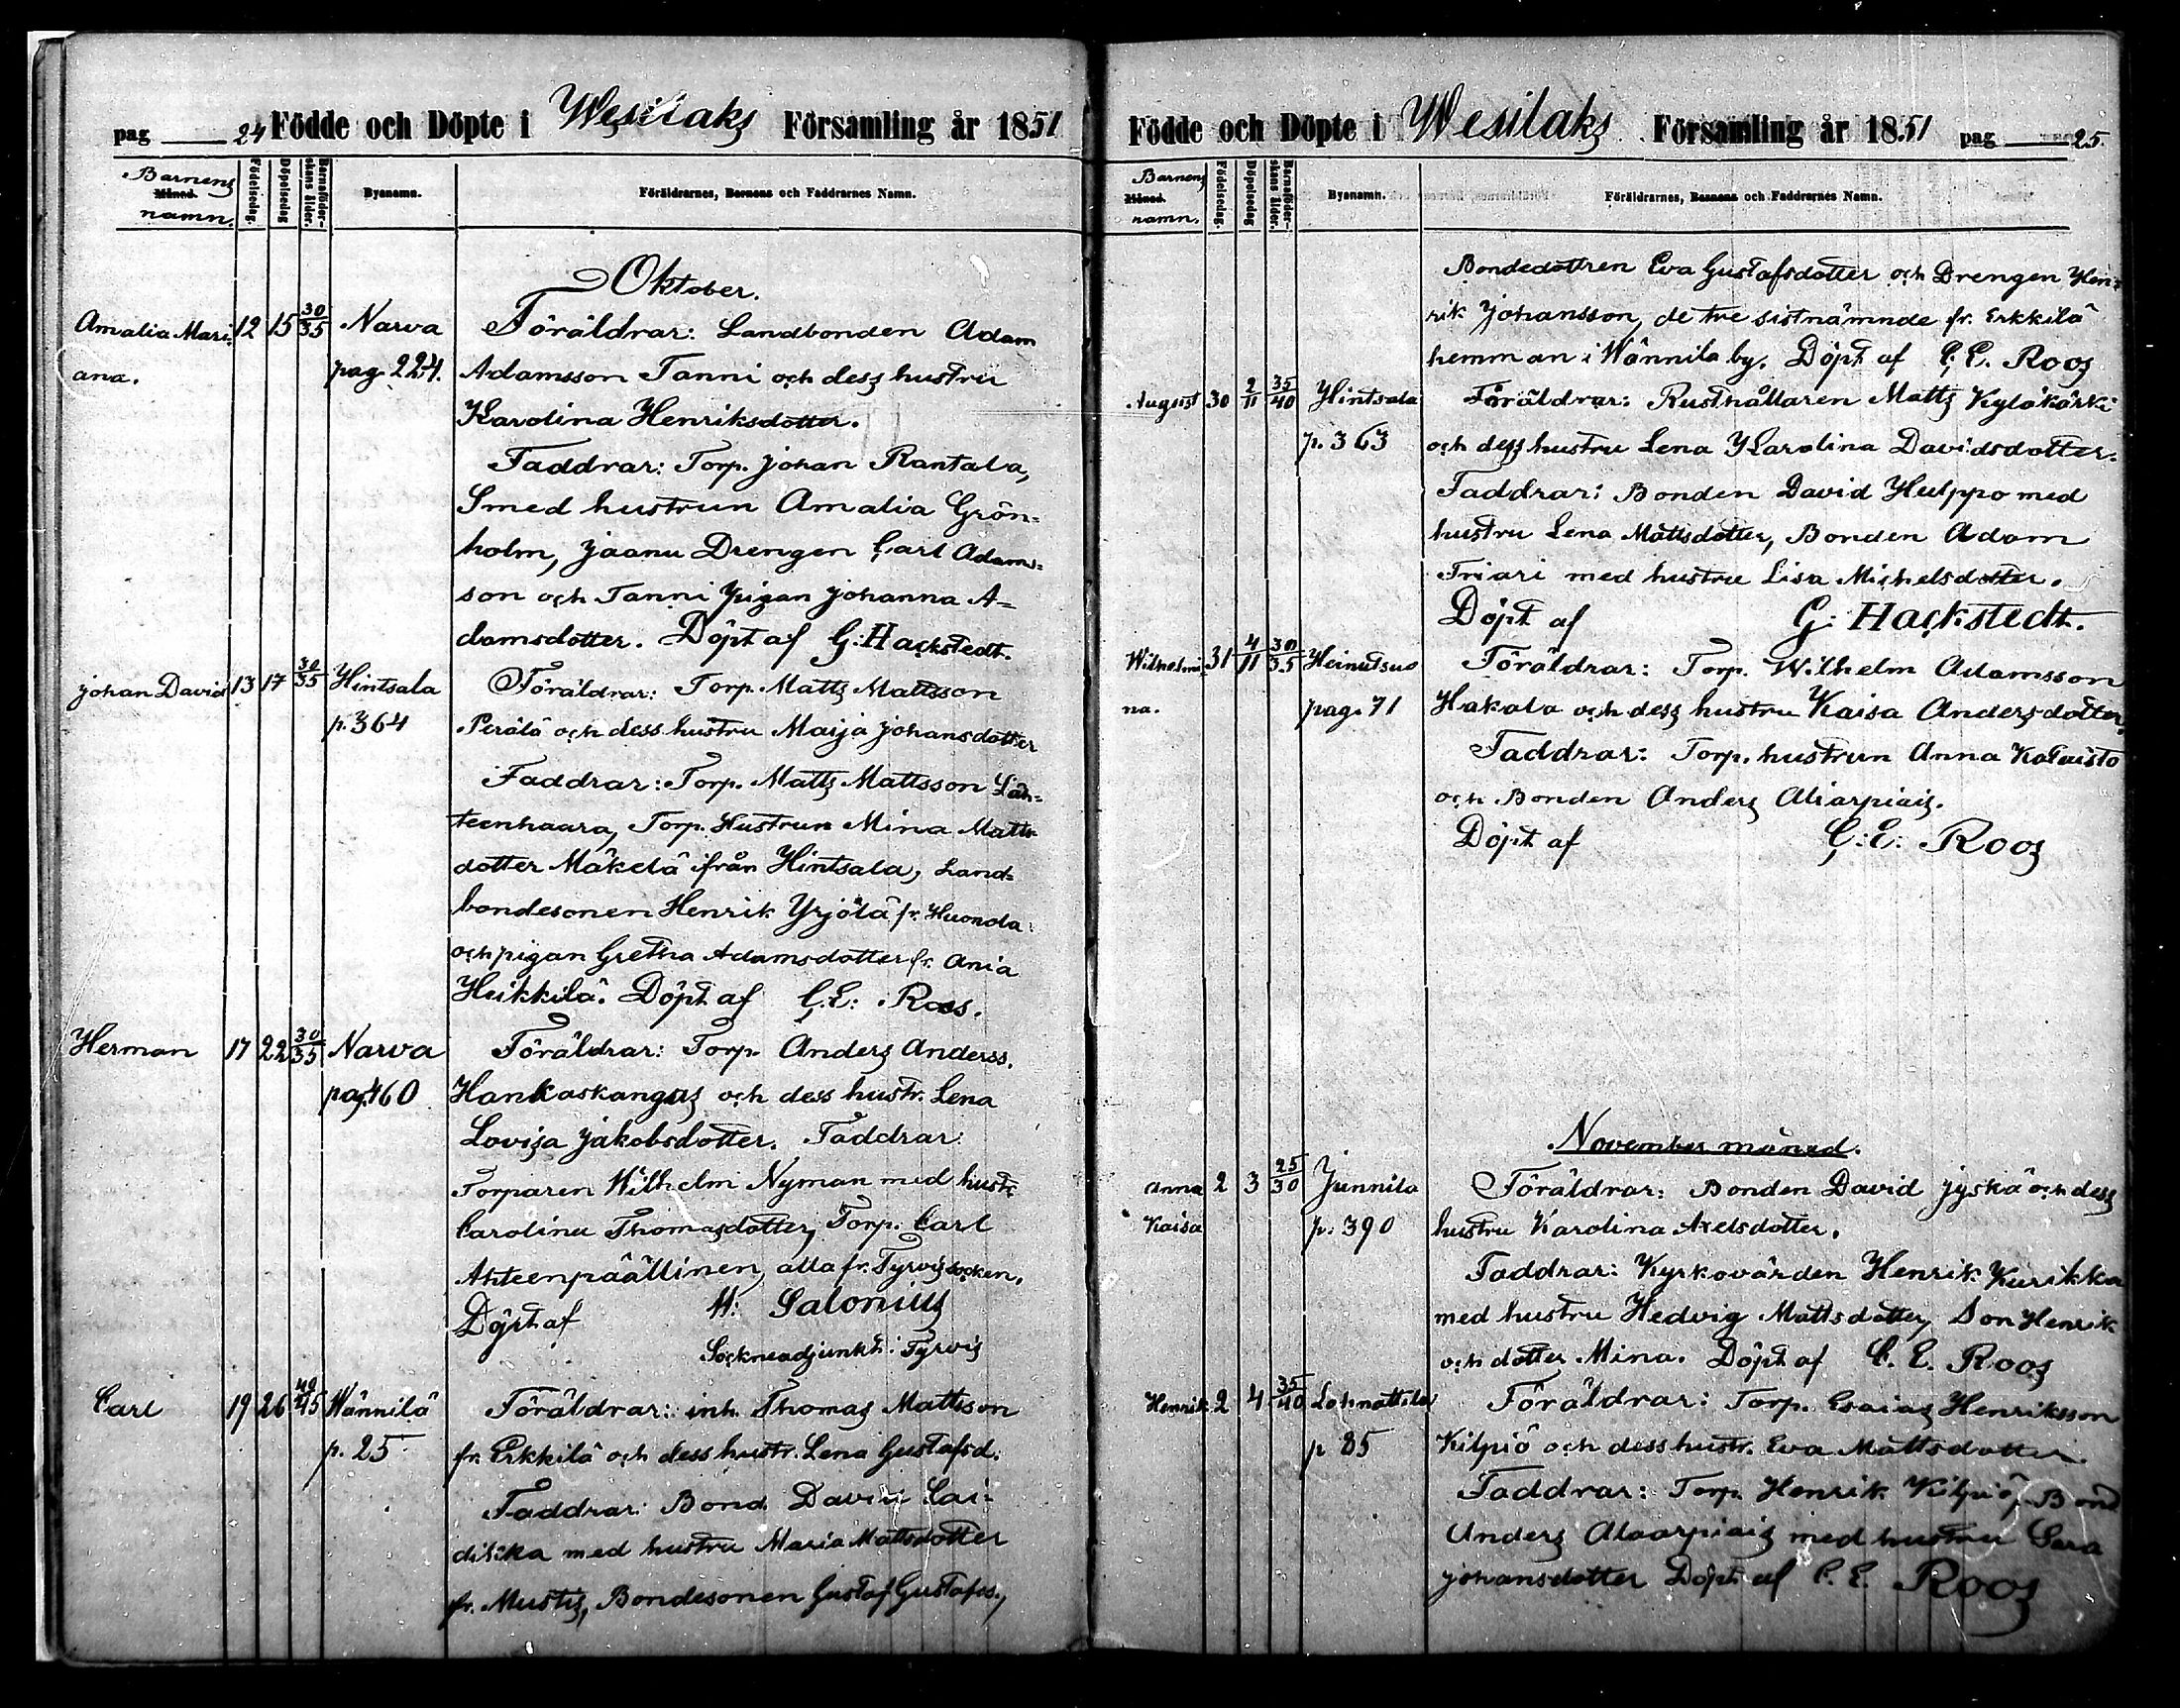 pag 24 Födde och Döpte i Wesilaks Församling år 1851
Barnens
Månad.
namn.
Födelsedag.
Döpelsedag
Barnaföderskans ålder.
Bysnamn.
Föräldrarnes, Barnens och Faddrarnes Namn.
Oktober.
Amalia Mari 12 15 30/35 Narva Föräldrar: Landbonden Adam
ana. pag. 224. Adamsson Tanni och dess hustru
Karolina Henriksdotter.
Faddrar: Torp. Johan Rantala,
Smed hustrun Amalia Grön=
holm, Jaanu Drengen Carl Adam=
son och Tanni Pigan Johanna A=
damsdotter. Döpt af G: Hackstedt.
Johan David 13 17 30/35 Hintsala Föräldrar: Torp. Matts Mattsson
p. 364 Perälä och dess hustru Maija Johansdotter
Faddrar: Torp. Matts Mattsson Läh=
teenhaara, Torp. Hustrun Mina Matts
dotter Mäkelä ifrån Hintsala, Land=
bondesonen Henrik Yrjölä fr. Huonola
och pigan Gretha Adamsdotter fr. Ania
Heikkilä. Döpt af C: E: Roos.
Herman 17 22 30/35 Narva Föräldrar: Torp. Anders Anderss.
pag. 460 Hankaskangas och dess hustr. Lena
Lovisa Jakobsdotter. Faddrar:
Torparen Wilhelm Nyman med hustr.
Carolina Thomasdotter, Torp. Carl
Ahteenpäällinen, alla fr. Tyrvis socken.
Döpt af H: Salonius
Sockneadjunkt i Tyrvis
Carl 19 26 40/45 Wännilä Föräldrar: inh. Thomas Mattsson
p. 25 fr. Erkkilä och dess hustr. Lena Gustafsd.
Faddrar: Bond. David Lai-
dikka med hustru Maria Mattsdotter
fr. Mustis, Bondesonen Gustaf Gustafss.,
Födde och Döpte i Wesilaks Församling år 1851 pag 25.
Barnens
Månad.
namn.
Födelsedag.
Döpelsedag
Barnaföderskans ålder.
Bysnamn.
Föräldrarnes, Barnens och Faddrarnes Namn.
Bondedottren Eva Gustafsdotter och Drengen Hen=
rik Johansson, de tre sistnämnde fr. Erkkilä
hemman i Wännilä by. Döpt af C. E. Roos
August 30 2/11 35/40 Hintsala Föräldrar: Rusthållaren Matts Kyläkärki
p. 363 och dess hustru Lena Karolina Davidsdotter.
Faddrar: Bonden David Hulppo med
hustru Lena Mattsdotter, Bonden Adam
Triari med hustru Lisa Michelsdotter.
Döpt af G: Hackstedt.
Wilhelmi 31 4/11 30/35 Heinutsuo Föräldrar: Torp. Wilhelm Adamsson
na. pag. 71 Hakala och dess hustru Kaisa Andersdotter.
Faddrar: Torp. hustrun Anna Kataisto
och Bonden Anders
Döpt af C: E: Roos
November månad.
Anna 2 3 25/30 Junnila Föräldrar: Bonden David Jyskä och dess
Kaisa p. 390 hustru Karolina Axelsdotter.
Faddrar: Kyrkovärden Henrik Kurikka
med hustru Hedvig Mattsdotter, Son Henrik
och dotter Mina. Döpt af C. E. Roos
Henrik 2 4 35/40 Föräldrar: Torp. Esaias Henriksson
p 85 Kilpiö och dess hustr. Eva Mattsdotter.
Faddrar: Torp. Henrik Kilpiö, Bond
Anders Alaarpiais med hustru Sara
Johansdotter Döpt af C. E. Roos